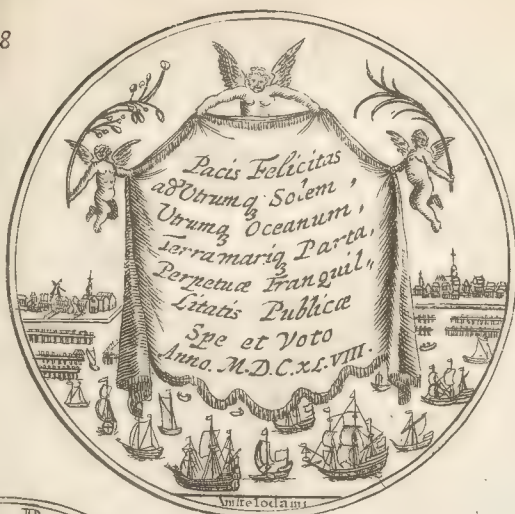 8
Pacis Felicitas
ad Utrumq₃ Solem,
Utrumq₃ Oceanum,
Terramariq₃ Parta,
Perpetuæ Tranquil„
Litatis Publicæ
Spe et Voto
Anno. M.D.C.XL.VIII.
Amstelodami